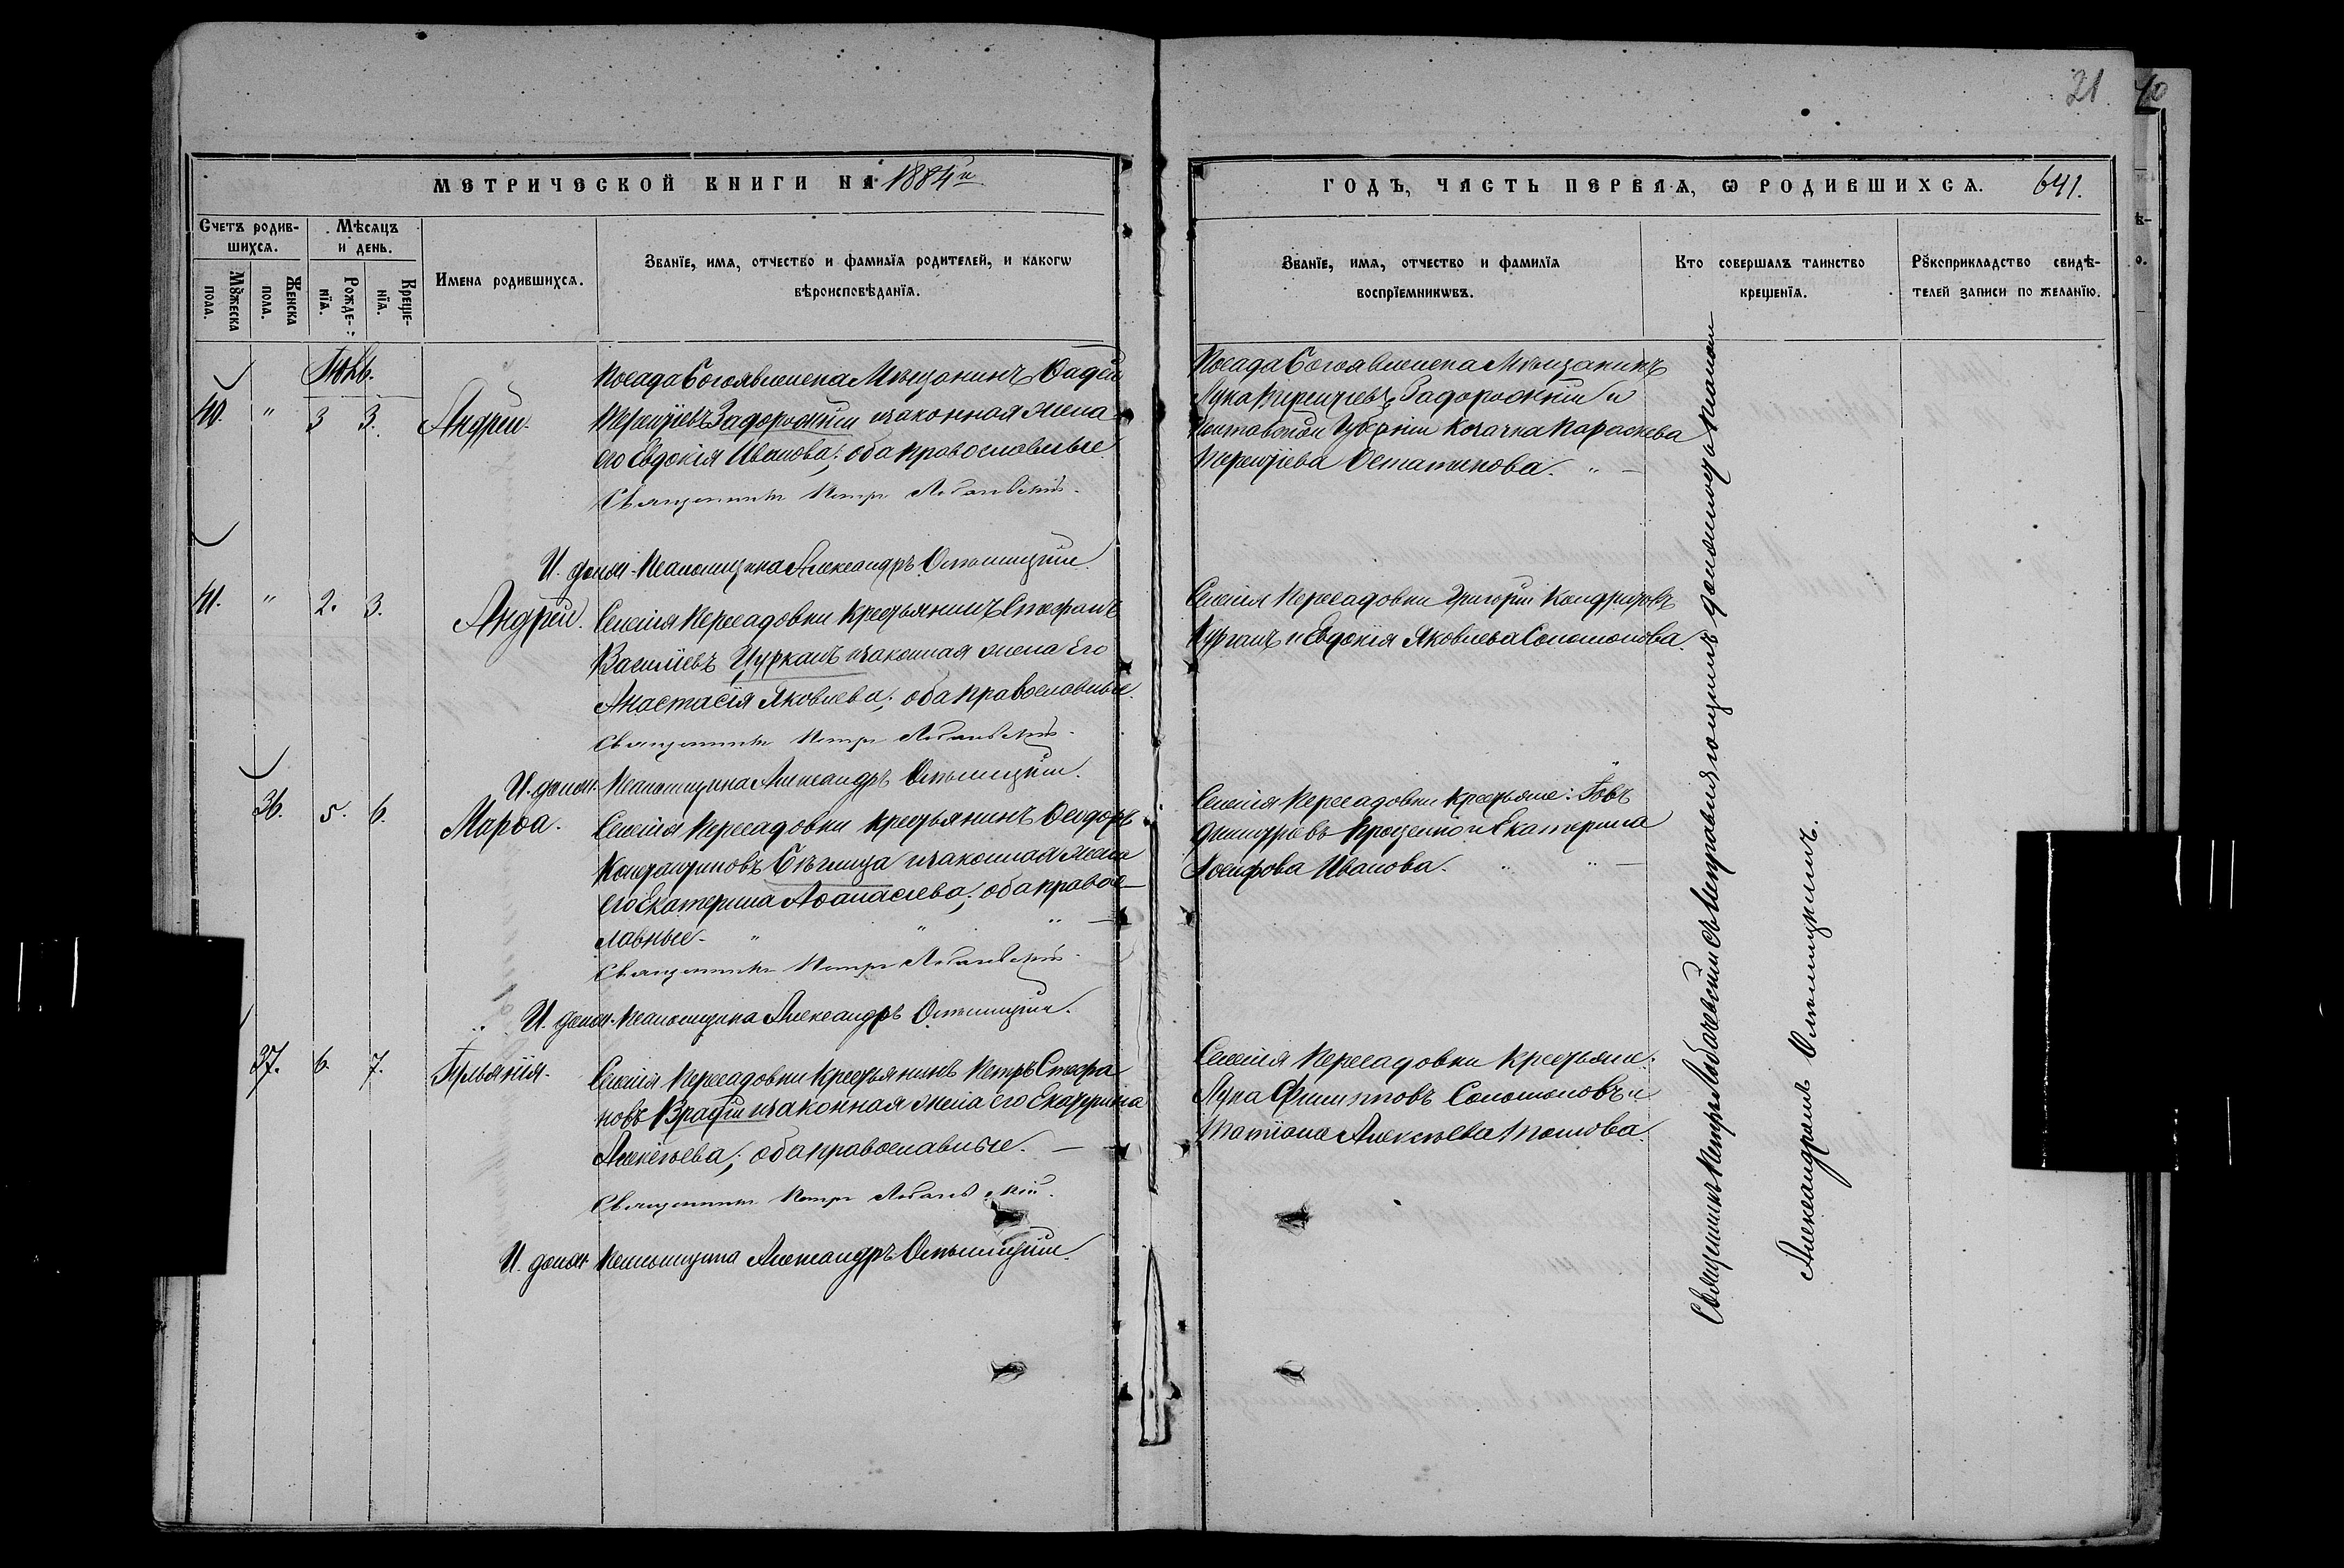 21.
МЕТРИЧЕСКОЙ КНИГИ НА 1884й
ГОДЪ, ЧАСТЬ ПЕРВАЯ, Ѡ РОДИВШИХСѦ. 641.
Счетъ родив-
шихсѧ.
Мѣсѧцъ
и день.
Мꙋжеска
пола.
Женска
пола.
Рожде-
нїѧ.
Креще-
нїѧ.
Имена родившихсѧ.
Званїе, имѧ, отчество и фамилїѧ родителей, и какогѡ
вѣроисповѣданїѧ.
Званїе, имѧ, отчество и фамилїѧ
воспрїемникѡвъ.
Кто совершалъ таинство
крещенїѧ.
Рꙋкоприкладство свидѣ-
телей записи по желанїю.
40. " 3 3. Андрей.
Посада Богоявленска Мѣщанинъ Фадей
Терентіевъ Задорожній и законная жена
его Евдокія Иванова; оба православные
Священникъ Петръ Лобачевскій.
И. должн. Псаломщика Александръ Ольшицкій.
Посада Богоявленска Мѣщанинъ
Лука Терентіевъ Задорожній и
Полтавской Губерніи Козачка Параскева
Терентіева Остапенкова. " —
41. " 2. 3. Андрей.
Селенія Пересадовки крестьянинъ Стефанъ
Василіевъ Цурканъ и законная жена Его
Анастасія Яковлева; оба православные.
Священникъ Петръ Лобачевскій.
И. должн. Псаломщика Александръ Ольшицкій.
Селенія Пересадовки Григорій Кондратовъ
Курганъ и Евдокія Яковлева Соломонова.
36. 5. 6. Марѳа.
Селенія Пересадовки крестьянинъ Ѳеодоръ
Константиновъ Бѣглица и законная жена
его Екатерина Аѳанасіева; оба правос-
лавные. " "
Священникъ Петръ Лобачевскій.
И. должн. Псаломщика Александръ Ольшицкій.
Селенія Пересадовки крестьяне: Іовъ
Димитріевъ Проценко и Екатерина
Іосифова Иванова. " " —
37. 6. 7. Іуліанія.
Селенія Пересадовки крестьянинъ Петръ Стефа
новъ Врадій и законная жена его Екатерина
Алексѣева; оба православные. —
Священникъ Петръ Лобачевскій.
И. должн. Псаломщика Александръ Ольшицкій.
Селенія Пересадовки крестьяне:
Лука Филипповъ Соломоновъ и
Татіана Алексѣева Попова.
Священникъ Петръ Лобачевскій съ Исправляющимъ должность Псаломщика
Александромъ Ольшицкимъ.